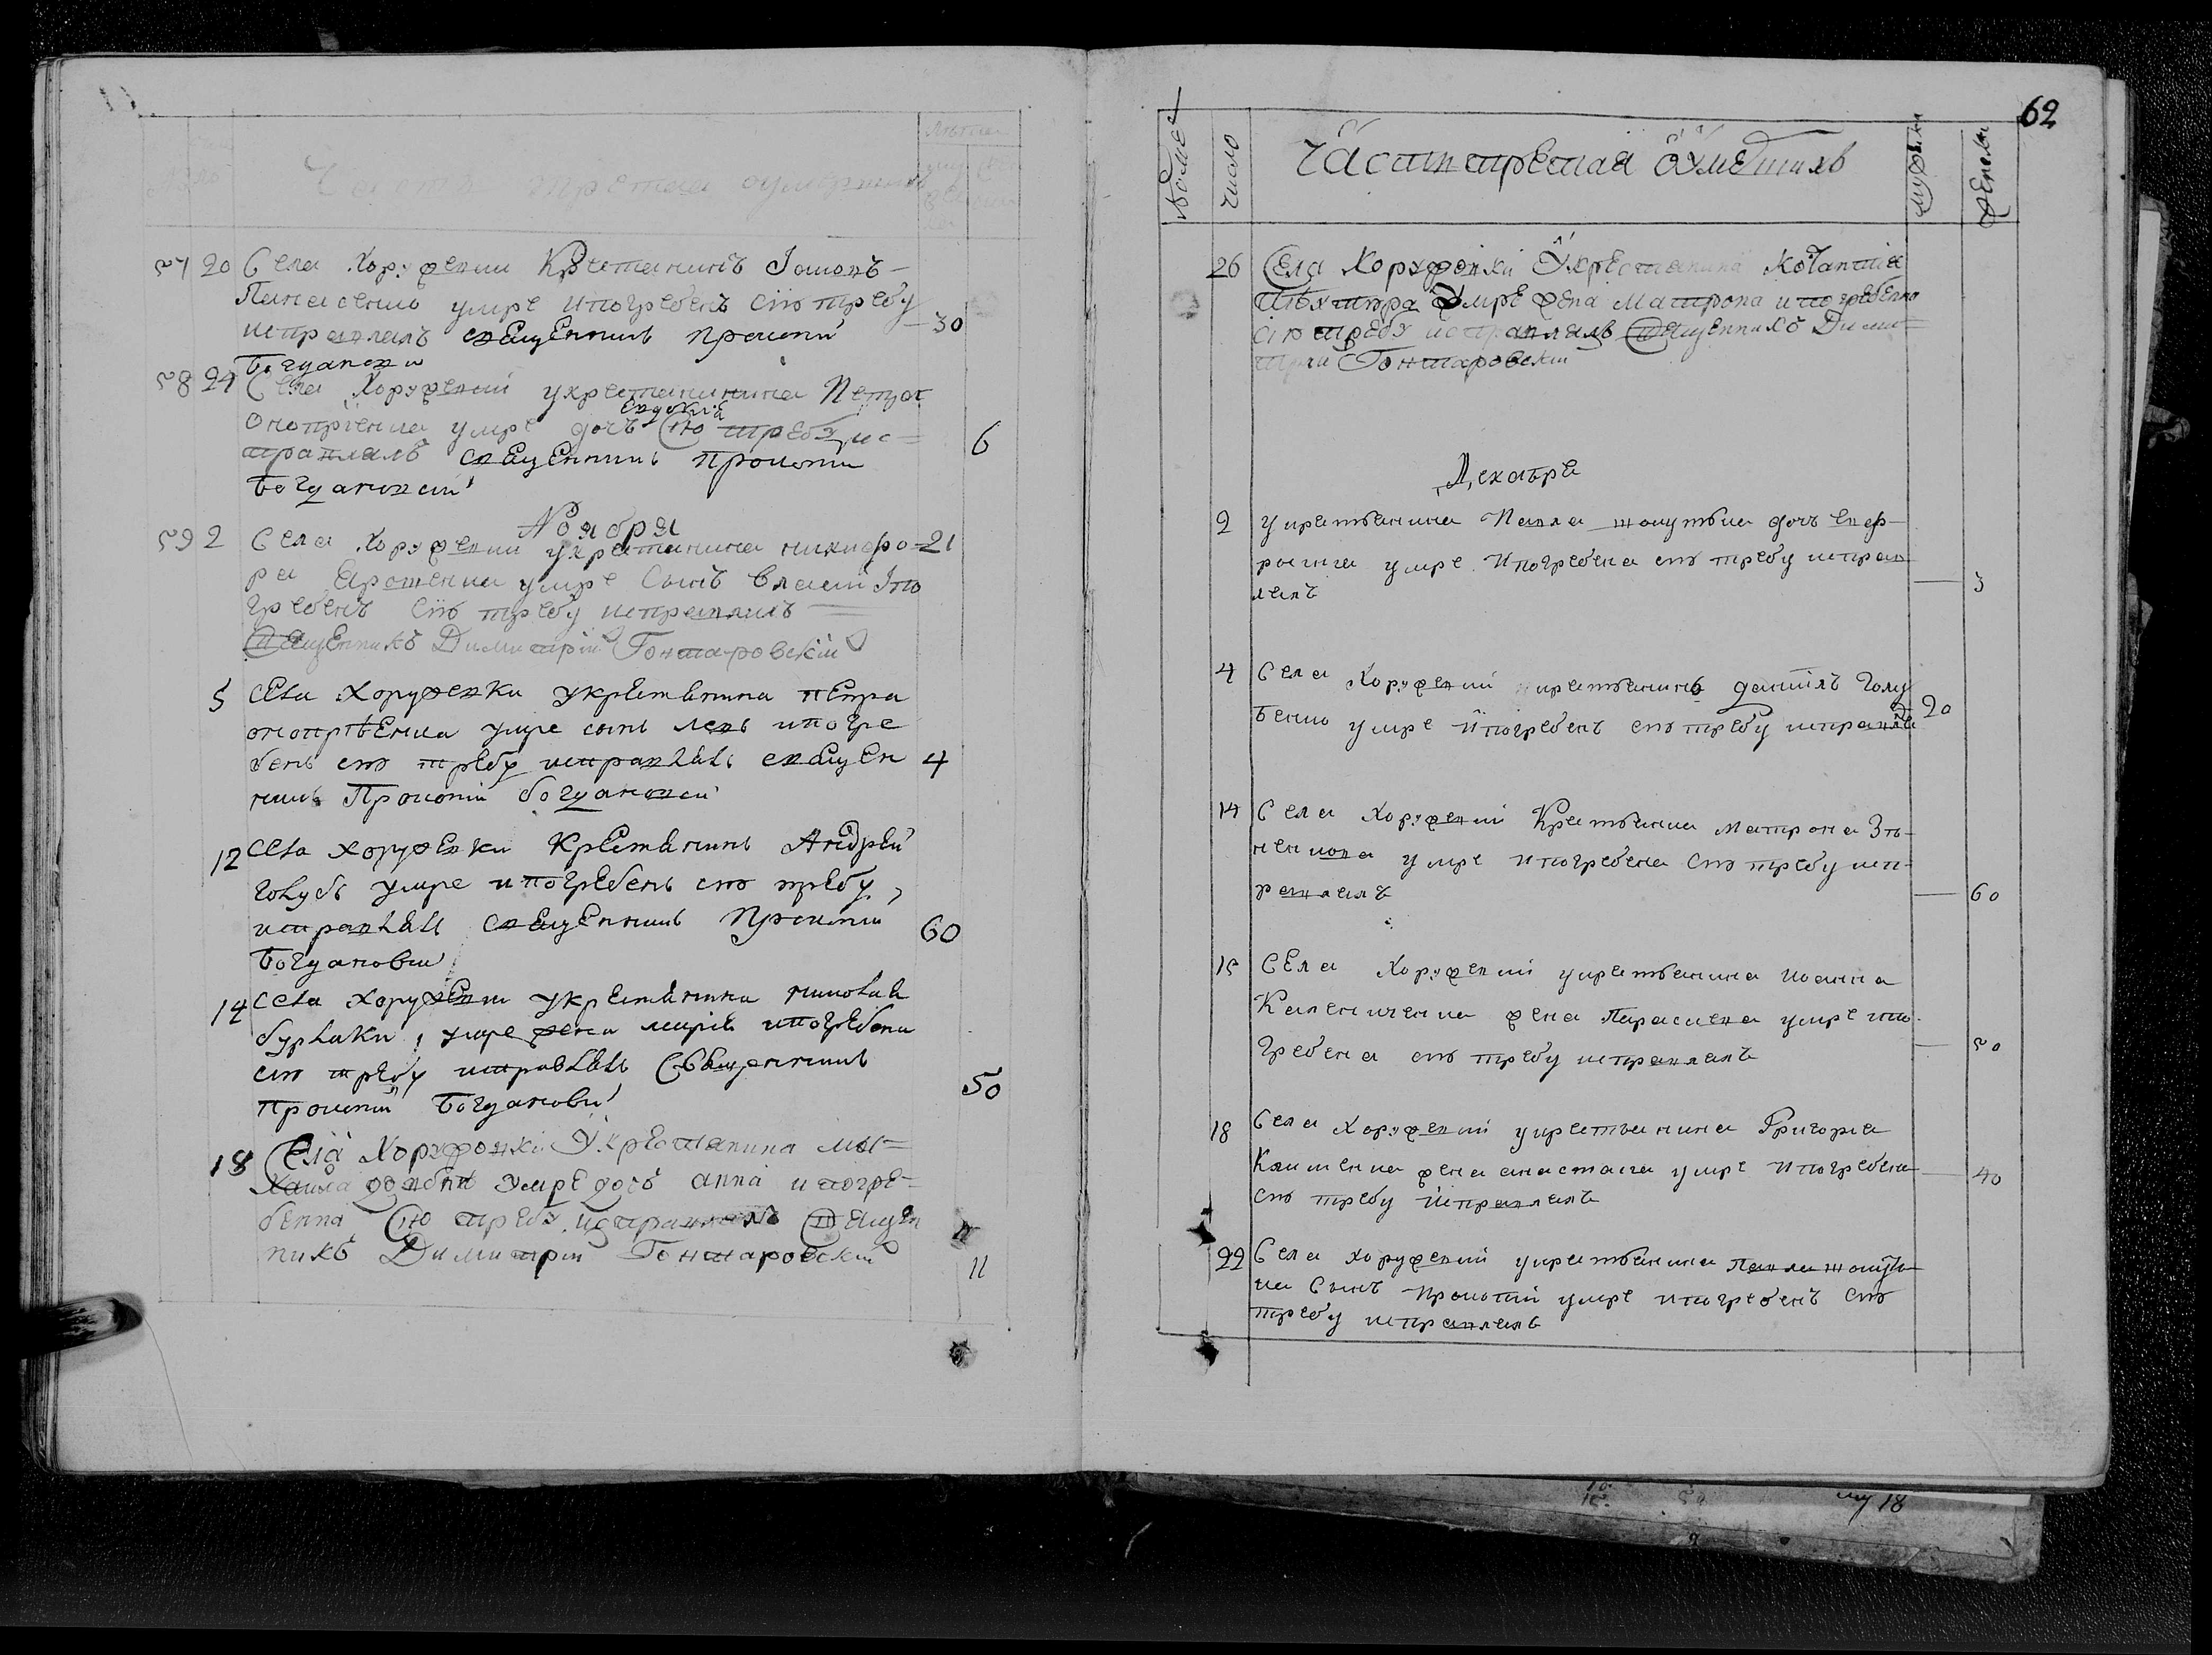 Часть третая оумершихъ
лѣта
57 20 Села Хоружевки Крестанинъ Іоаонъ
Панасенко умре и погребенъ сію требу 30
исправлялъ священникъ Прокопій
Богдановій
58 24 Села Хоружевки у крестанинина Петра
Оноприенка умре дочъ Евдокиа сію требу ис=
правлялъ священникъ Прокопій 6
Богдановскій
Ноября
59 2 Села Хоружевки у крестанина никифо= 21
ра Ярошенка умре сынъ Власій і по
гребенъ сію требу исправлялъ
священникъ Димитрій Гонтаровскій
5 села Хоружевки у крестянина петра
оноприенка умре сынъ левъ и погре
бенъ сию требу исправлялъ священ 4
никъ Прокопій богдановскій
12 села хоружевки крестянинъ Андрей
голубъ умре и погребенъ сию требу
исправлялъ священникъ Прокопій 60
Богдановій
14 села хоружевки у крестянина николая
бурлаки умре жена мария и погребена
сию требу исправлялъ священникъ
Прокопій Богдановій 50
18 Села Хоружовки У крестанина ми=
хаила довбни умре дочъ анна и погре=
бенна сію требу исправлялъ священ
никъ Димитрий Гонтаровский 11
62
число
Часть третая о умершихъ
мужска
женска
26 Села Хоружовки У крестанина
умре жена Матрона и погребенна
сію требу исправлялъ священникъ Дими=
трій Гонтаровский
Декабре
2 у крестьянина Павла дочъ евф-
росиния умре и погребена сию требу исправ
лялъ 3
4 Села Хоружевки крестьянинъ даниилъ Голу
бенко умре и погребенъ сию требу исправля 20
14 Села Хоружевки Крестьянка матрона Зѣ-
ненкова умре и погребена сию требу исп-
равлялъ 60
15 Села Хоружевки у крестьянина иоанна
Калениченка жена Парасиева умре и по-
гребена сию требу исправлялъ 50
18 Села Хоружевки у крестьянина Григорія
Клименка жена анастасия умре и погребена 40
сию требу исправлялъ
22 Села хоружевки у крестьянина павла
ка сынъ прокопій умре и погребенъ сию
требу исправлялъ
му 18